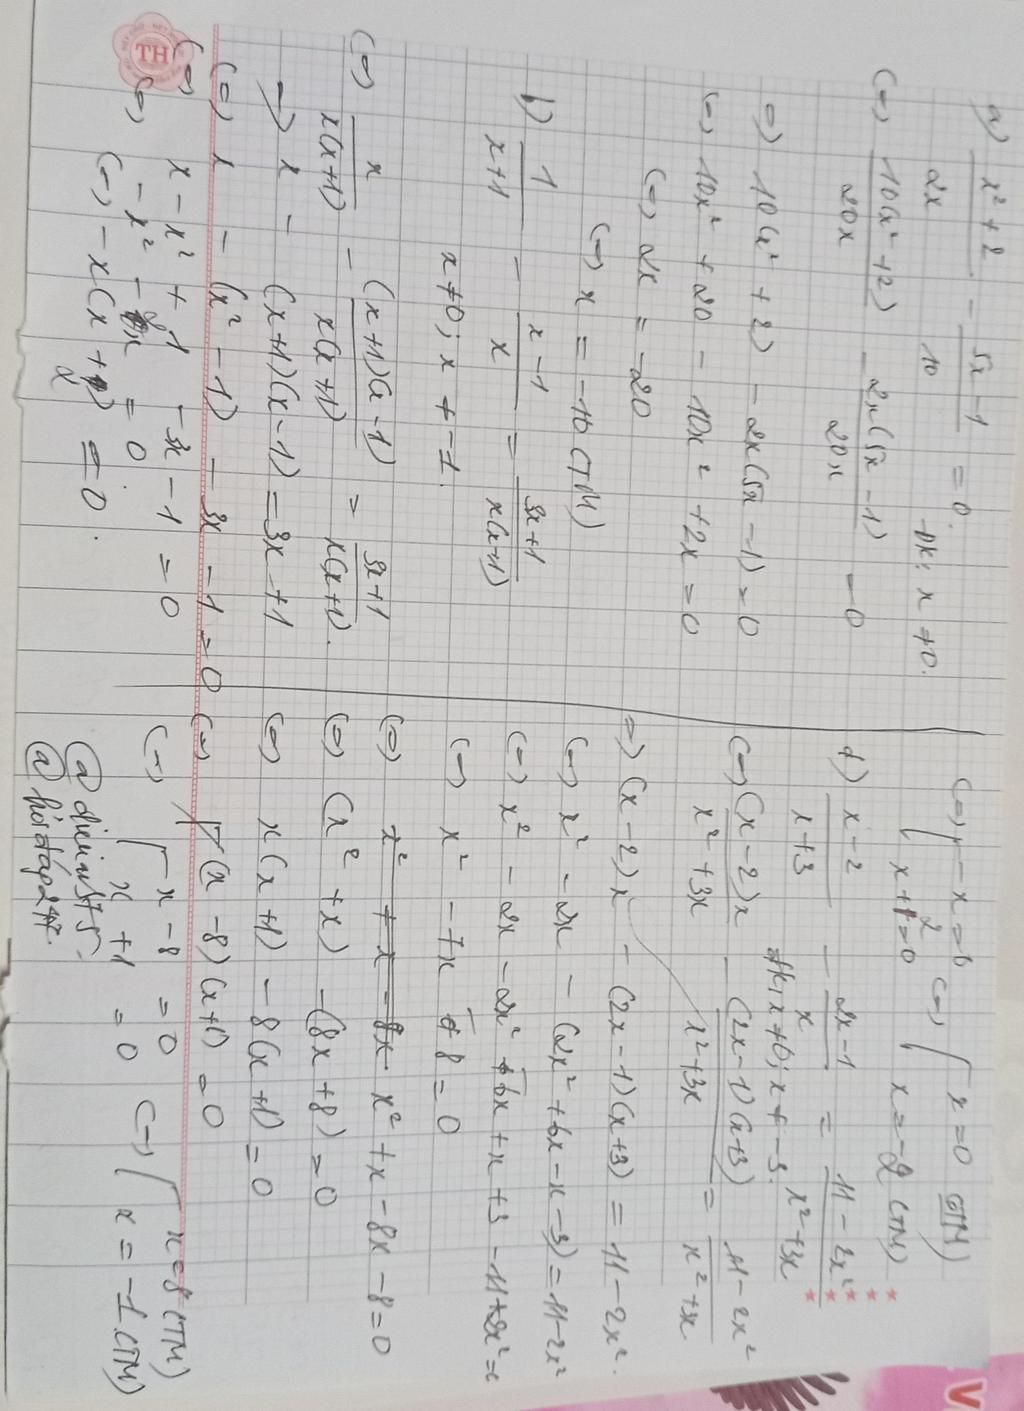 a) x²+2/2x - 5x-1/10 = 0. ĐK: x ≠ 0.
(=) 10(x²+2)/20x - 2x(5x-1)/20x = 0
=) 10(x²+2) - 2x(5x-1) = 0
(=) 10x² + 20 - 10x² + 2x = 0
(=) 2x = -20
(=) x = -10 (TM)
b) 1/x+1 - x-1/x = 3x+1/x(x+1)
x ≠ 0; x ≠ -1.
(=) x/x(x+1) - (x+1)(x-1)/x(x+1) = 3x+1/x(x+1).
=) x - (x+1)(x-1) = 3x+1
(=) x - (x²-1) - 3x - 1 = 0
(=) x - x² + 1 - 3x - 1 = 0
(=) - x² - 2x = 0
(=) - x(x+2) = 0.
(=) [ -x = 0 (=) [ x = 0 (TM)
x + 2 = 0 x = -2 (TM)
d) x-2/x+3 - 2x-1/x = 11-2x²/x²+3x
ĐK: x ≠ 0; x ≠ -3.
(=) (x-2)x/x²+3x - (2x-1)(x+3)/x²+3x = 11-2x²/x²+3x
=) (x-2)x - (2x-1)(x+3) = 11-2x².
(=) x² - 2x - (2x²+6x-x-3) = 11-2x²
(=) x² - 2x - 2x² - 6x + x + 3 - 11 + 2x² =
(=) x² - 7x - 8 = 0
(=) x² + x - 8x - 8 = 0
(=) (x²+x) - (8x+8) = 0
(=) x(x+1) - 8(x+1) = 0
(=) (x-8)(x+1) = 0
(=) [ x-8 = 0 (=) [ x = 8 (TM)
x+1 = 0 x = -1 (TM)
@hỏi đáp 247.
TH
V